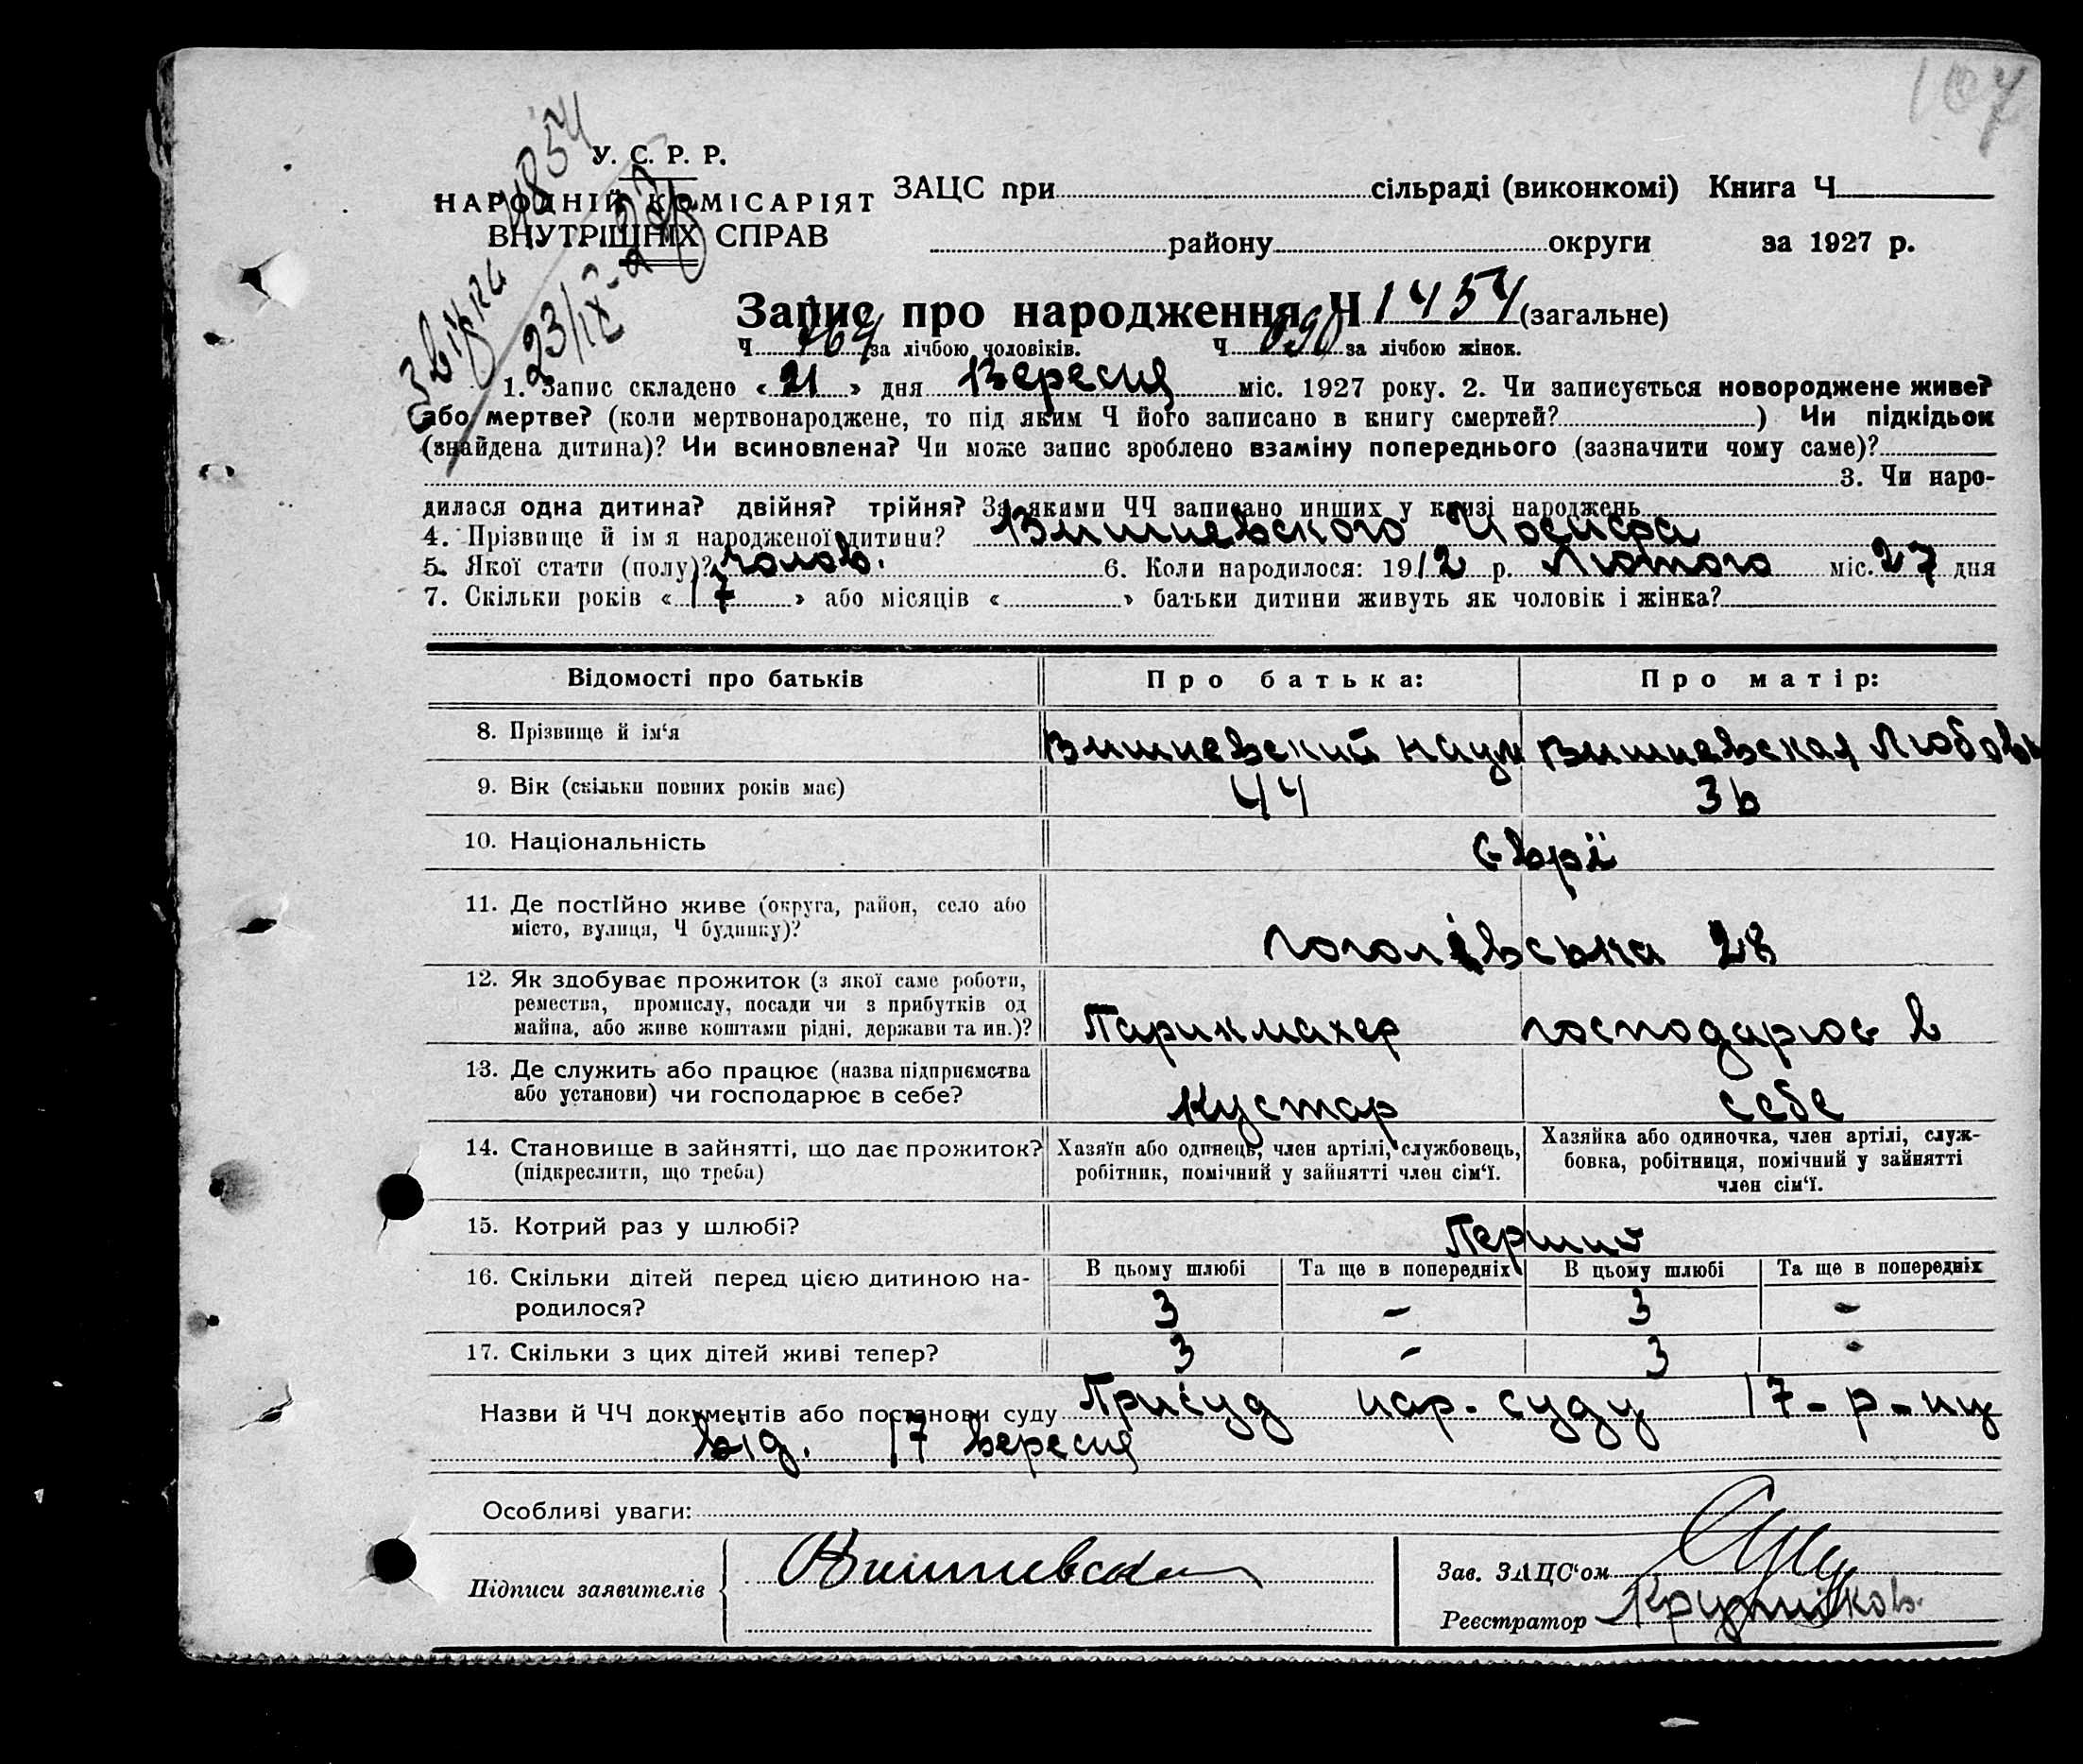 107
У. С. Р. Р.
НАРОДНІЙ КОМІСАРІЯТ
ВНУТРІШНІХ СПРАВ
ЗАЦС при сільраді (виконкомі) Книга Ч
району округи за 1927 р.
23/IX-27
Запис про народження Ч 1454 (загальне)
Ч 764 за лічбою чоловіків. Ч 690 за лічбою жінок.
1. Запис складено « 21 » дня Вересня міс. 1927 року. 2. Чи записується новороджене живе?
або мертве? (коли мертвонароджене, то під яким Ч його записано в книгу смертей? ) Чи підкідьок
(знайдена дитина)? Чи всиновлена? Чи може запис зроблено взаміну попереднього (зазначити чому саме)?
3. Чи наро-
дилася одна дитина? двійня? трійня? За якими ЧЧ записано инших у книзі народжень
4. Прізвище й ім я народженої дитини? Вишневського Иосифа
5. Якої стати (полу)? чолов. 6. Коли народилося: 1912 р. Лютого міс. 27 дня
7. Скільки років « 17 » або місяців « » батьки дитини живуть як чоловік і жінка?
Відомості про батьків Про батька: Про матір:
8. Прізвище й ім‘я Вишневский Наум Вишневская Любовь
9. Вік (скільки повних років має) 44 36
10. Національність Євреї
11. Де постійно живе (округа, район, село або
місто, вулиця, Ч будинку)? Гоголівська 28
12. Як здобуває прожиток (з якої саме роботи,
ремества, промислу, посади чи з прибутків од
майна, або живе коштами рідні, держави та ин.)? Парикмахер господарює в
13. Де служить або працює (назва підприємства
або установи) чи господарює в себе? Кустар себе
14. Становище в зайнятті, що дає прожиток?
(підкреслити, що треба)
Хазяїн або одинець, член артілі, службовець,
робітник, помічний у зайнятті член сім‘ї.
Хазяйка або одиночка, член артілі, служ-
бовка, робітниця, помічний у зайнятті
член сім‘ї.
15. Котрий раз у шлюбі? Перший
16. Скільки дітей перед цією дитиною на-
родилося?
В цьому шлюбі Та ще в попередніх В цьому шлюбі Та ще в попередніх
3 - 3 -
17. Скільки з цих дітей живі тепер? 3 - 3 -
Назви й ЧЧ документів або постанови суду Присуд нар. суду 17-р-ну
від. 17 вересня
Особливі уваги:
Підписи заявителів
Зав. ЗАЦС‘ом
Реєстратор